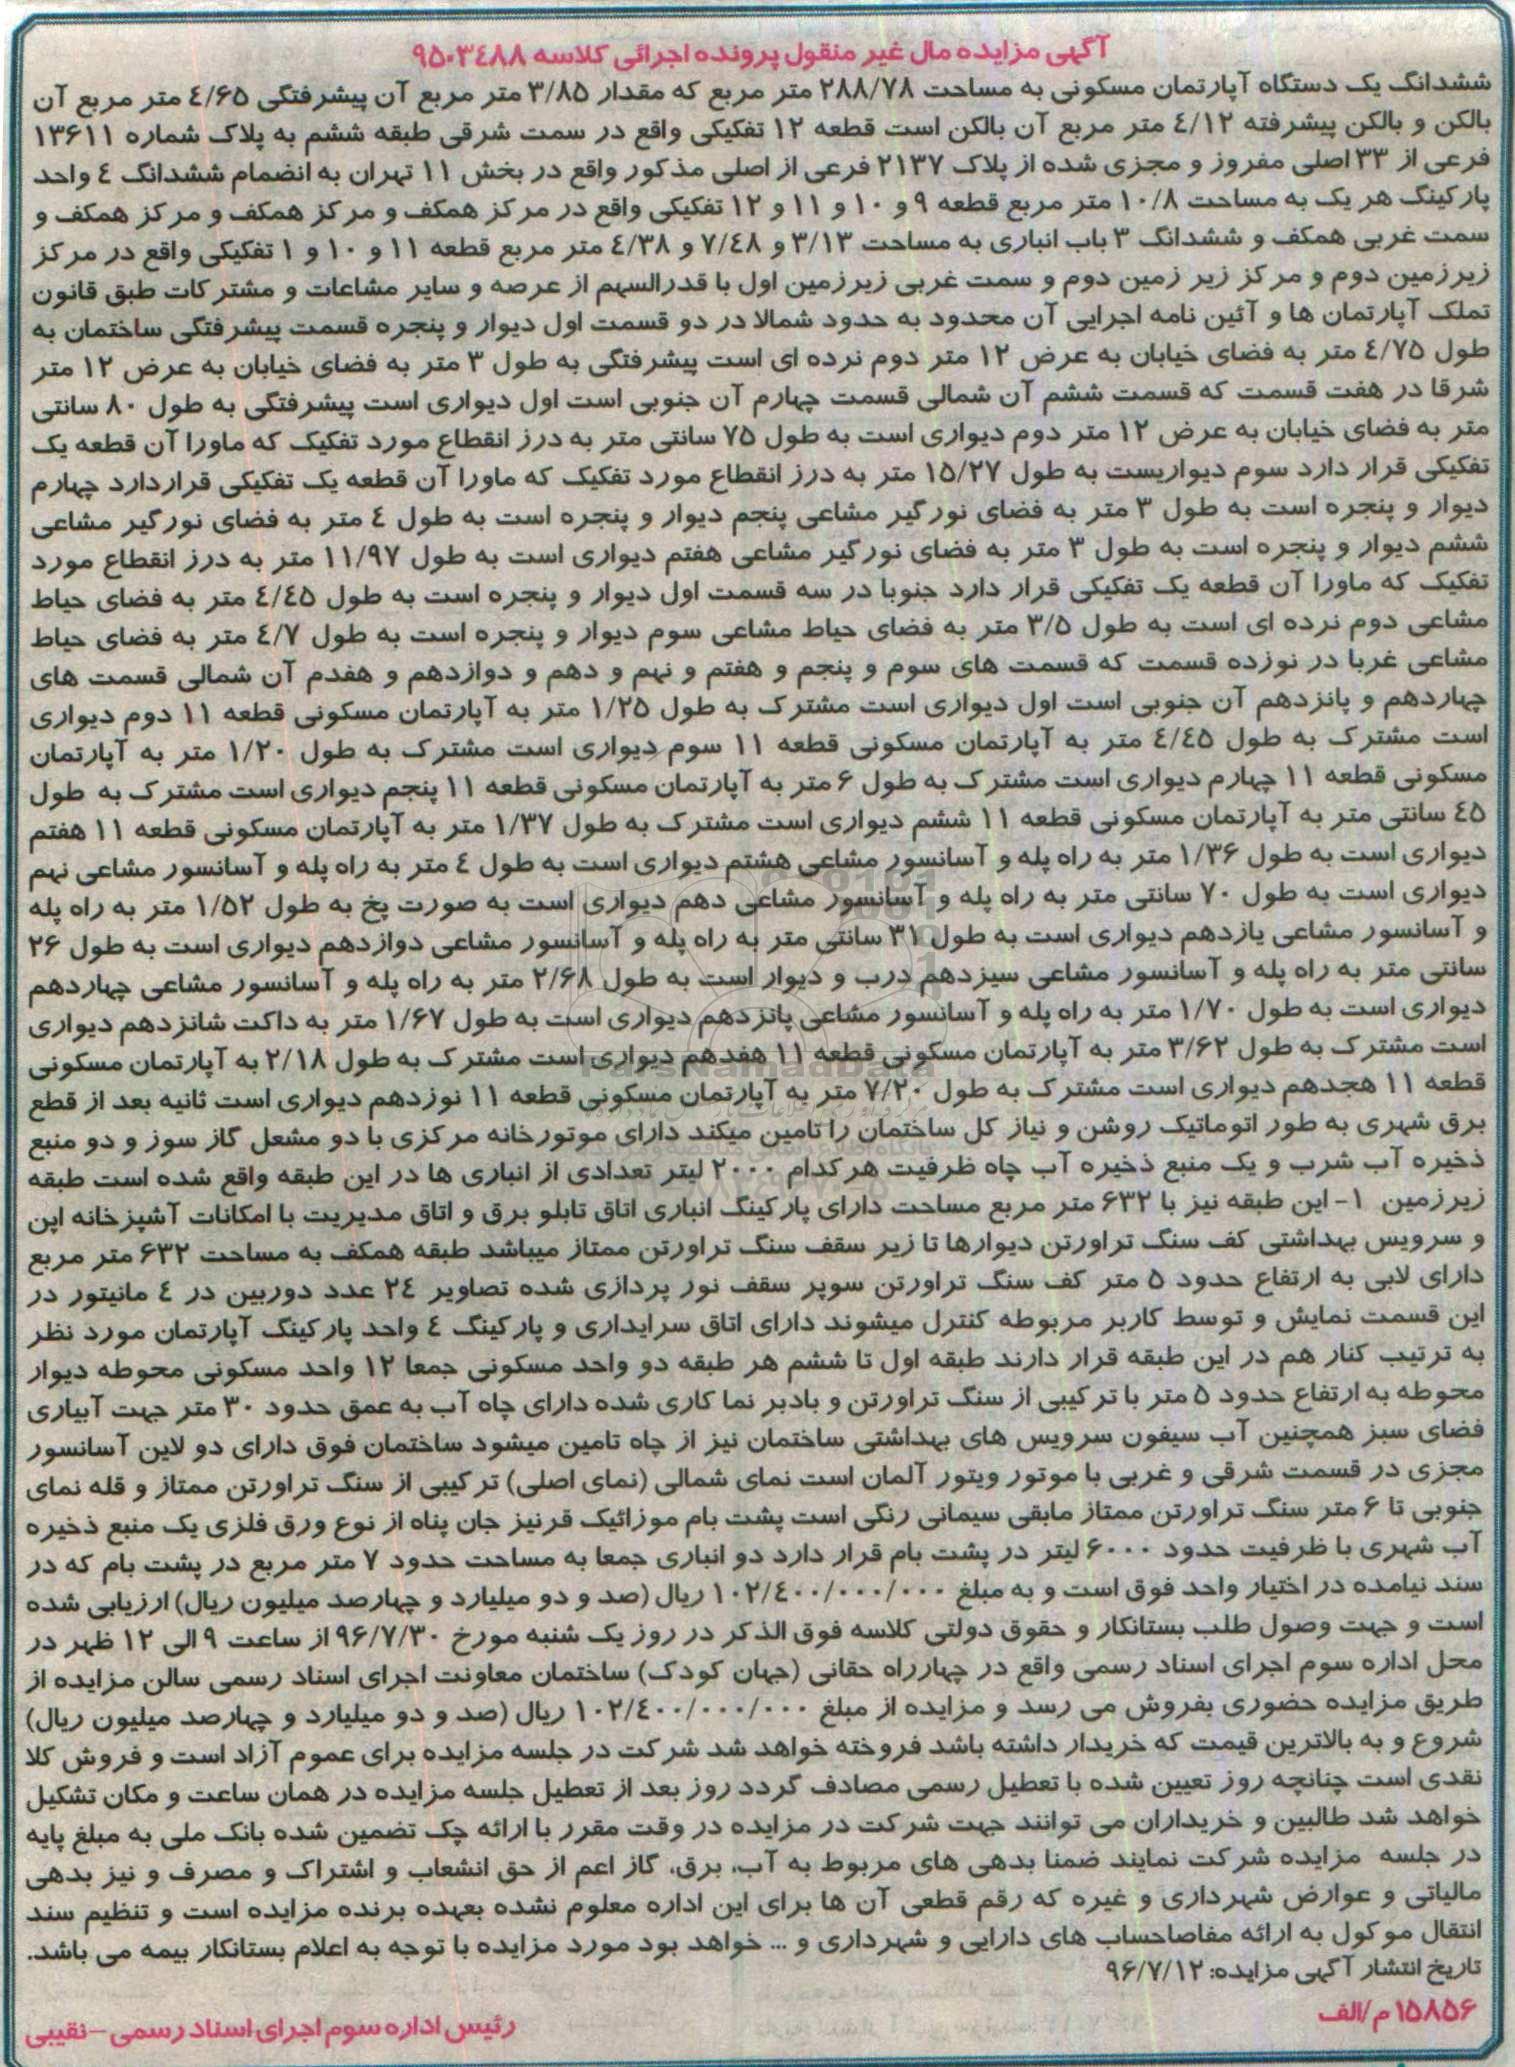 آگهی مزایده مال غیر منقول پرونده اجرائی کلاسه ۹۵۰۳٤۸۸
ششدانگ یک دستگاه آپارتمان مسکونی به مساحت ۲۸۸/۷۸ متر مربع که مقدار ۳/۸۵ متر مربع آن پیشرفتگی ٤/۶۵ متر مربع آن
بالکن و بالکن پیشرفته ٤/۱۲ متر مربع آن بالکن است قطعه ۱۲ تفکیکی واقع در سمت شرقی طبقه ششم به پلاک شماره ۱۳۶۱۱
فرعی از ۳۳ اصلی مفروز و مجزی شده از پلاک ۲۱۳۷ فرعی از اصلی مذکور واقع در بخش ۱۱ تهران به انضمام ششدانگ ٤ واحد
پارکینگ هر یک به مساحت ۱۰/۸ متر مربع قطعه ۹ و ۱۰ و ۱۱ و ۱۲ تفکیکی واقع در مرکز همکف و مرکز همکف و مرکز همکف و
سمت غربی همکف و ششدانگ ۳ باب انباری به مساحت ۳/۱۳ و ۷/٤۸ و ٤/۳۸ متر مربع قطعه ۱۱ و ۱۰ و ۱ تفکیکی واقع در مرکز
زیرزمین دوم و مرکز زیر زمین دوم و سمت غربی زیرزمین اول با قدرالسهم از عرصه و سایر مشاعات و مشترکات طبق قانون
تملک آپارتمان ها و آئین نامه اجرایی آن محدود به حدود شمالا در دو قسمت اول دیوار و پنجره قسمت پیشرفتگی ساختمان به
طول ٤/۷۵ متر به فضای خیابان به عرض ۱۲ متر دوم نرده ای است پیشرفتگی به طول ۳ متر به فضای خیابان به عرض ۱۲ متر
شرقا در هفت قسمت که قسمت ششم آن شمالی قسمت چهارم آن جنوبی است اول دیواری است پیشرفتگی به طول ۸۰ سانتی
متر به فضای خیابان به عرض ۱۲ متر دوم دیواری است به طول ۷۵ سانتی متر به درز انقطاع مورد تفکیک که ماورا آن قطعه یک
تفکیکی قرار دارد سوم دیواریست به طول ۱۵/۲۷ متر به درز انقطاع مورد تفکیک که ماورا آن قطعه یک تفکیکی قراردارد چهارم
دیوار و پنجره است به طول ۳ متر به فضای نورگیر مشاعی پنجم دیوار و پنجره است به طول ٤ متر به فضای نورگیر مشاعی
ششم دیوار و پنجره است به طول ۳ متر به فضای نورگیر مشاعی هفتم دیواری است به طول ۱۱/۹۷ متر به درز انقطاع مورد
تفکیک که ماورا آن قطعه یک تفکیکی قرار دارد جنوبا در سه قسمت اول دیوار و پنجره است به طول ٤/٤۵ متر به فضای حیاط
مشاعی دوم نرده ای است به طول ۳/۵ متر به فضای حیاط مشاعی سوم دیوار و پنجره است به طول ٤/۷ متر به فضای حیاط
مشاعی غربا در نوزده قسمت که قسمت های سوم و پنجم و هفتم و نهم و دهم و دوازدهم و هفدم آن شمالی قسمت های
چهاردهم و پانزدهم آن جنوبی است اول دیواری است مشترک به طول ۱/۲۵ متر به آپارتمان مسکونی قطعه ۱۱ دوم دیواری
است مشترک به طول ٤/٤۵ متر به آپارتمان مسکونی قطعه ۱۱ سوم دیواری است مشترک به طول ۱/۲۰ متر به آپارتمان
مسکونی قطعه ۱۱ چهارم دیواری است مشترک به طول ۶ متر به آپارتمان مسکونی قطعه ۱۱ پنجم دیواری است مشترک به طول
٤۵ سانتی متر به آپارتمان مسکونی قطعه ۱۱ ششم دیواری است مشترک به طول ۱/۳۷ متر به آپارتمان مسکونی قطعه ۱۱ هفتم
دیواری است به طول ۱/۳۶ متر به راه پله و آسانسور مشاعی هشتم دیواری است به طول ٤ متر به راه پله و آسانسور مشاعی نهم
دیواری است به طول ۷۰ سانتی متر به راه پله و آسانسور مشاعی دهم دیواری است به صورت پخ به طول ۱/۵۲ متر به راه پله
و آسانسور مشاعی یازدهم دیواری است به طول ۳۱ سانتی متر به راه پله و آسانسور مشاعی دوازدهم دیواری است به طول ۲۶
سانتی متر به راه پله و آسانسور مشاعی سیزدهم درب و دیوار است به طول ۲/۶۸ متر به راه پله و آسانسور مشاعی چهاردهم
دیواری است به طول ۱/۷۰ متر به راه پله و آسانسور مشاعی پانزدهم دیواری است به طول ۱/۶۷ متر به داکت شانزدهم دیواری
است مشترک به طول ۳/۶۲ متر به آپارتمان مسکونی قطعه ۱۱ هفدهم دیواری است مشترک به طول ۲/۱۸ به آپارتمان مسکونی
قطعه ۱۱ هجدهم دیواری است مشترک به طول ۷/۲۰ متر به آپارتمان مسکونی قطعه ۱۱ نوزدهم دیواری است ثانیه بعد از قطع
برق شهری به طور اتوماتیک روشن و نیاز کل ساختمان را تامین میکند دارای موتورخانه مرکزی با دو مشعل گاز سوز و دو منبع
ذخیره آب شرب و یک منبع ذخیره آب چاه ظرفیت هرکدام ۲۰۰۰ لیتر تعدادی از انباری ها در این طبقه واقع شده است طبقه
زیرزمین ۱- این طبقه نیز با ۶۳۲ متر مربع مساحت دارای پارکینگ انباری اتاق تابلو برق و اتاق مدیریت با امکانات آشپزخانه اپن
و سرویس بهداشتی کف سنگ تراورتن دیوارها تا زیر سقف سنگ تراورتن ممتاز میباشد طبقه همکف به مساحت ۶۳۲ متر مربع
دارای لابی به ارتفاع حدود ۵ متر کف سنگ تراورتن سوپر سقف نور پردازی شده تصاویر ۲٤ عدد دوربین در ٤ مانیتور در
این قسمت نمایش و توسط کاربر مربوطه کنترل میشوند دارای اتاق سرایداری و پارکینگ ٤ واحد پارکینگ آپارتمان مورد نظر
به ترتیب کنار هم در این طبقه قرار دارند طبقه اول تا ششم هر طبقه دو واحد مسکونی جمعا ۱۲ واحد مسکونی محوطه دیوار
محوطه به ارتفاع حدود ۵ متر با ترکیبی از سنگ تراورتن و بادبر نما کاری شده دارای چاه آب به عمق حدود ۳۰ متر جهت آبیاری
فضای سبز همچنین آب سیفون سرویس های بهداشتی ساختمان نیز از چاه تامین میشود ساختمان فوق دارای دو لاین آسانسور
مجزی در قسمت شرقی و غربی با موتور ویتور آلمان است نمای شمالی (نمای اصلی) ترکیبی از سنگ تراورتن ممتاز و قله نمای
جنوبی تا ۶ متر سنگ تراورتن ممتاز مابقی سیمانی رنگی است پشت بام موزائیک قرنیز جان پناه از نوع ورق فلزی یک منبع ذخیره
آب شهری با ظرفیت حدود ۶۰۰۰ لیتر در پشت بام قرار دارد دو انباری جمعا به مساحت حدود ۷ متر مربع در پشت بام که در
سند نیامده در اختیار واحد فوق است و به مبلغ ۱۰۲/٤۰۰/۰۰۰/۰۰۰ ریال (صد و دو میلیارد و چهارصد میلیون ریال) ارزیابی شده
است و جهت وصول طلب بستانکار و حقوق دولتی کلاسه فوق الذکر در روز یک شنبه مورخ ۹۶/۷/۳۰ از ساعت ۹ الی ۱۲ ظهر در
محل اداره سوم اجرای اسناد رسمی واقع در چهارراه حقانی (جهان کودک) ساختمان معاونت اجرای اسناد رسمی سالن مزایده از
طریق مزایده حضوری بفروش می رسد و مزایده از مبلغ ۱۰۲/٤۰۰/۰۰۰/۰۰۰ ریال (صد و دو میلیارد و چهارصد میلیون ریال)
شروع و به بالاترین قیمت که خریدار داشته باشد فروخته خواهد شد شرکت در جلسه مزایده برای عموم آزاد است و فروش کلا
نقدی است چنانچه روز تعیین شده با تعطیل رسمی مصادف گردد روز بعد از تعطیل جلسه مزایده در همان ساعت و مکان تشکیل
خواهد شد طالبین و خریداران می توانند جهت شرکت در مزایده در وقت مقرر با ارائه چک تضمین شده بانک ملی به مبلغ پایه
در جلسه مزایده شرکت نمایند ضمنا بدهی های مربوط به آب، برق، گاز اعم از حق انشعاب و اشتراک و مصرف و نیز بدهی
مالیاتی و عوارض شهرداری و غیره که رقم قطعی آن ها برای این اداره معلوم نشده بعهده برنده مزایده است و تنظیم سند
انتقال موکول به ارائه مفاصاحساب های دارایی و شهرداری و ... خواهد بود مورد مزایده با توجه به اعلام بستانکار بیمه می باشد.
تاریخ انتشار آگهی مزایده: ۹۶/۷/۱۲
۱۵۸۵۶ م/الف
رئیس اداره سوم اجرای اسناد رسمی - نقیبی